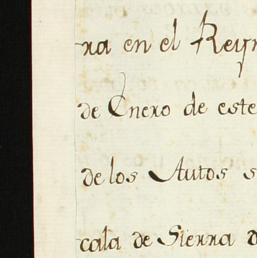 ra en el Reyn
de Enero de este
de los Autos s
cala de Sierra d